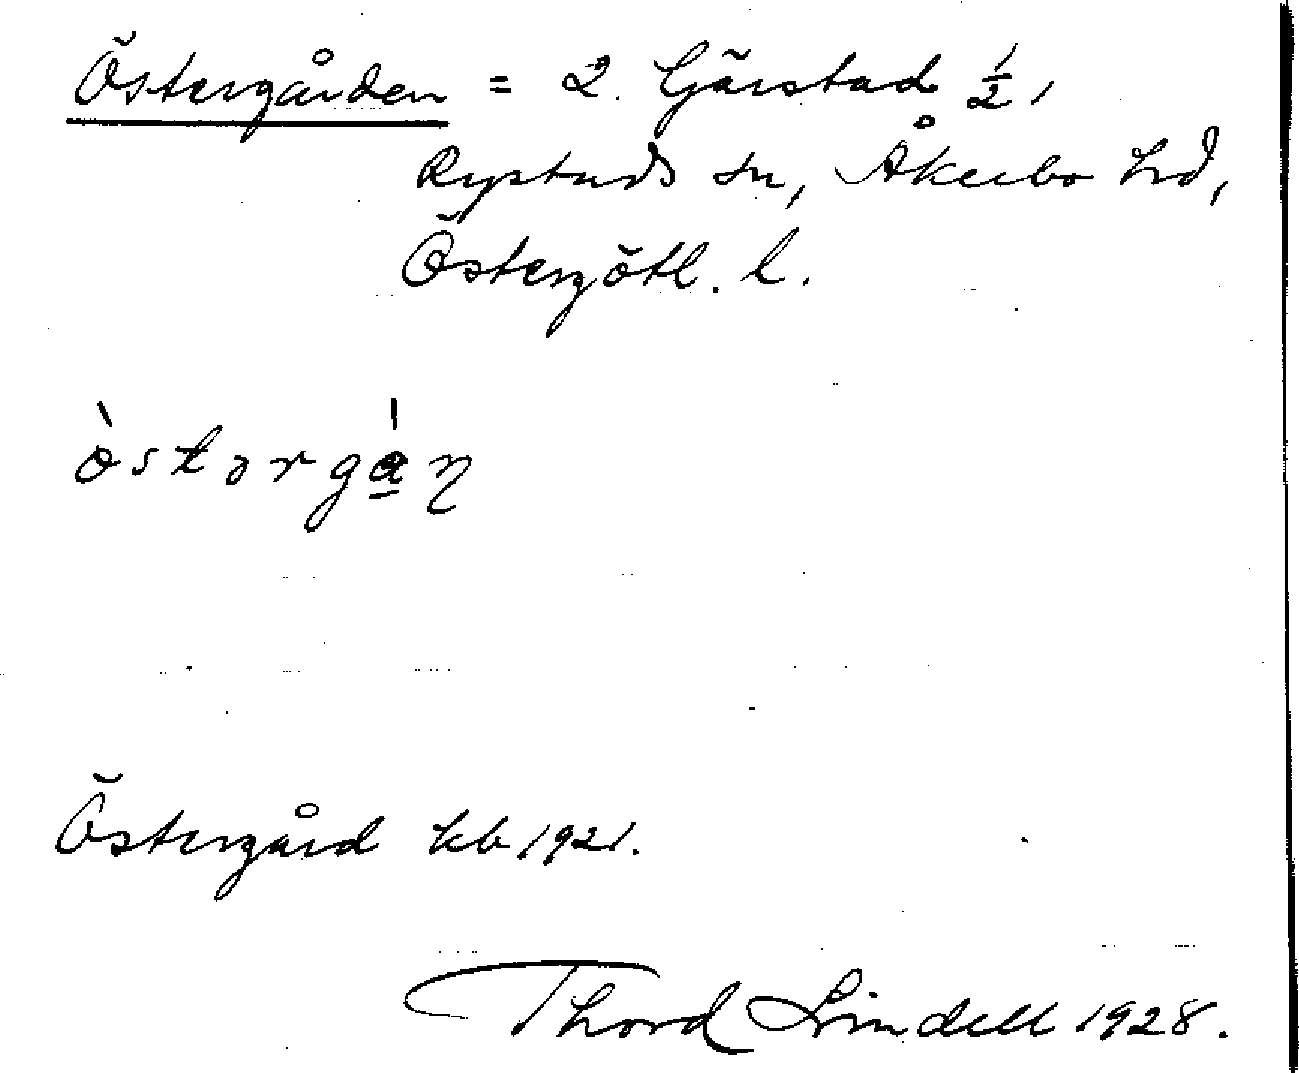 Östergården = 2. Gärstad ½,
Rystads sn, Åkerbo hd,
Östergötl. l.
ö̀stərgá̱ɳ
Östergård kb 1921.
Thord Lindell 1928.